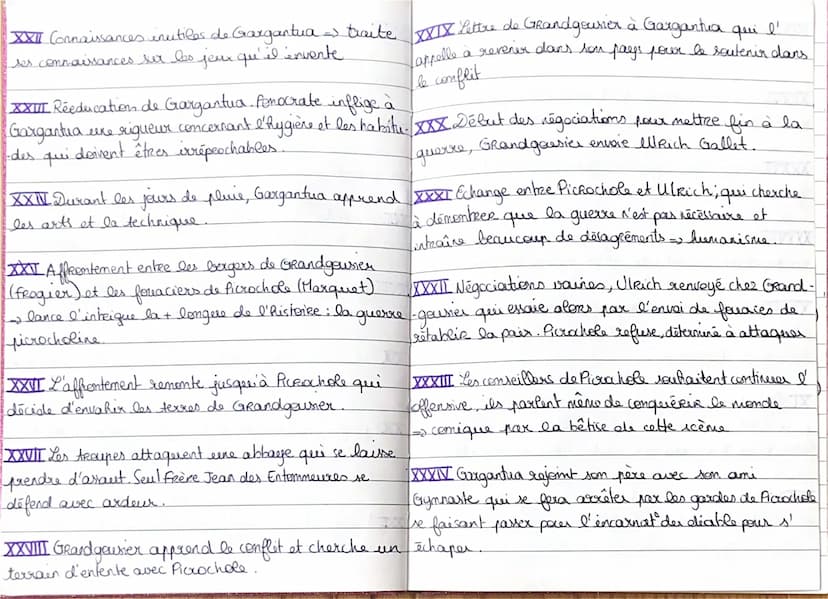 XXII Connaissances inutiles de Gargantua => traite
ses connaissances sur les jeux qu'il invente
XXIII Rééducation de Gargantua. Ponocrate inflige à
Gargantua une rigueur concernant l'hygiène et les habitu-
-des qui doivent êtres irréprochables.
XXIV Durant les jours de pluie, Gargantua apprend
les arts et la technique.
XXV Affrontement entre les bergers de Grandgousier
(Frogier) et les fouaciers de Picrochole (Marquet)
-> lance l'intrigue la + longue de l'histoire : la guerre
picrocholine
XXVI L'affrontement remonte jusqu'à Picrochole qui
décide d'envahir les terres de Grandgousier.
XXVII Les troupes attaquent une abbaye qui se laisse
prendre d'assaut. Seul Frère Jean des Entommeures se
défend avec ardeur.
XXVIII Grandgousier apprend le conflit et cherche un
terrain d'entente avec Picrochole.
XXIX Lettre de Grandgousier à Gargantua qui l'
appelle à revenir dans son pays pour le soutenir dans
le conflit
XXX Début des négociations pour mettre fin à la
guerre, Grandgousier envoie Ulrich Gallet.
XXXI Echange entre Picrochole et Ulrich, qui cherche
à démontrer que la guerre n'est pas nécessaire et
entraîne beaucoup de désagréments => humanisme.
XXXII Négociations vaines, Ulrich renvoyé chez Grand-
-gousier qui essaie alors par l'envoi de fouaces de
rétablir la paix. Picrochole refuse, déterminé à attaquer
XXXIII Les conseillers de Picrochole souhaitent continuer l'
offensive, ils parlent même de conquérir le monde
=> comique par la bêtise de cette scène
XXXIV Gargantua rejoint son père avec son ami
Gymnaste qui se fera arrêter par les gardes de Picrochole
se faisant passer pour l'incarnat° du diable pour s'
échaper.